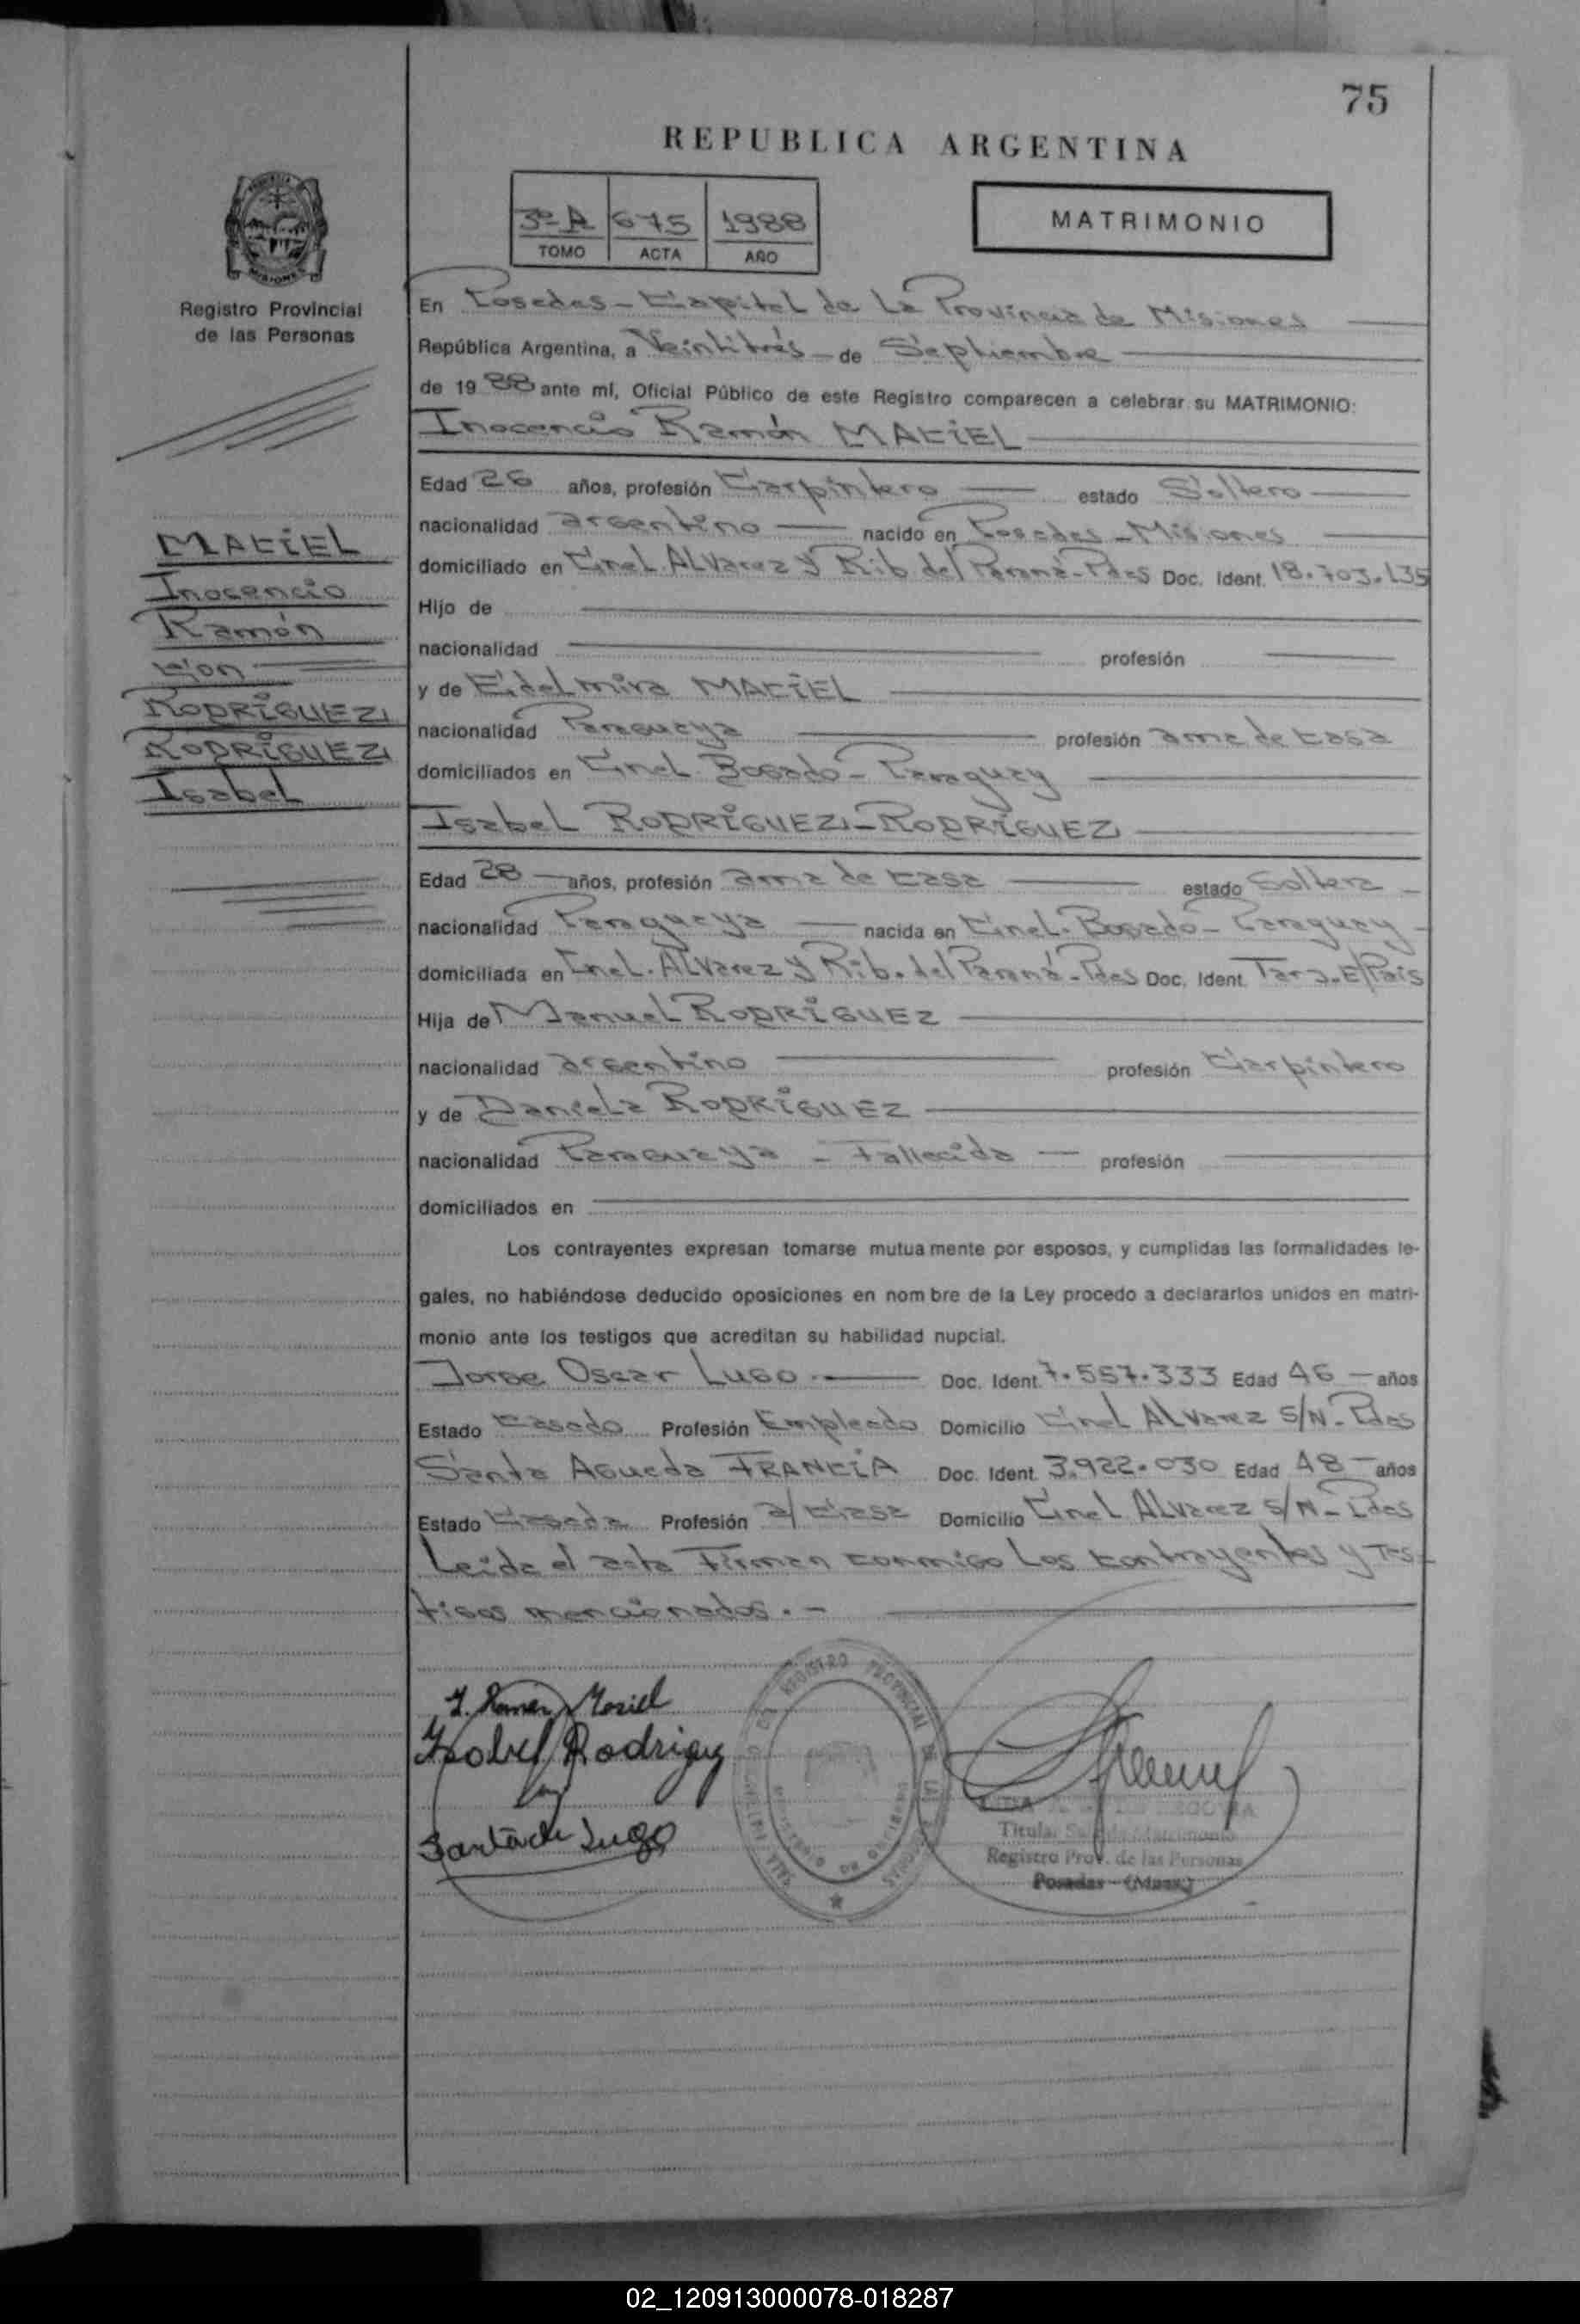 75
REPUBLICA ARGENTINA
3º A 675 1988
TOMO ACTA AÑO
MATRIMONIO
Registro Provincial
de las Personas
MACIEL
Inocencio
Ramón
con
RODRIGUEZ
RODRIGUEZ
Isabel
En Posadas - Capital de La Provincia de Misiones
República Argentina, a Veintitrés de Septiembre
de 1988 ante mí, Oficial Público de este Registro comparecen a celebrar su MATRIMONIO:
Inocencio Ramón MACIEL
Edad 26 años, profesión Carpintero estado Soltero
nacionalidad argentino nacido en Posadas - Misiones
domiciliado en Cnel. Alvarez y Rib del Paraná - Pdas Doc. Ident. 18.703.135
Hijo de
nacionalidad profesión
y de Eidelmira MACIEL
nacionalidad Paraguaya profesión ama de casa
domiciliados en Cnel. Bogado - Paraguay
Isabel RODRIGUEZ - RODRIGUEZ
Edad 28 años, profesión ama de casa estado Soltera
nacionalidad Paraguaya nacida en Cnel. Bogado - Paraguay
domiciliada en Cnel. Alvarez y Rib. del Paraná - Pdas Doc. Ident. E/País
Hija de Manuel RODRIGUEZ
nacionalidad argentino profesión Carpintero
y de Daniela RODRIGUEZ
nacionalidad Paraguaya - Fallecida profesión
domiciliados en
Los contrayentes expresan tomarse mutuamente por esposos, y cumplidas las formalidades le-
gales, no habiéndose deducido oposiciones en nombre de la Ley procedo a declararlos unidos en matri-
monio ante los testigos que acreditan su habilidad nupcial.
Jorge Oscar Lugo Doc. Ident. 7.557.333 Edad 46 años
Estado Casado Profesión Empleado Domicilio Cnel Alvarez S/N - Pdas
Santa Agueda FRANCIA Doc. Ident. 3.922.030 Edad 48 años
Estado Casada Profesión a/ Casa Domicilio Cnel Alvarez S/N - Pdas
Leida el acta Firman conmigo Los contrayentes y Tes-
tigos mencionados. -
I. Ramón Maciel
Isabel Rodriguez
Santa de Lugo
REGISTRO PROVINCIAL DE LAS PERSONAS
MINISTERIO DE GOBIERNO
SEGOVIA
Titular Sec. de Matrimonio
Registro Prov. de las Personas
Posadas - (Mnes.)
02_120913000078-018287